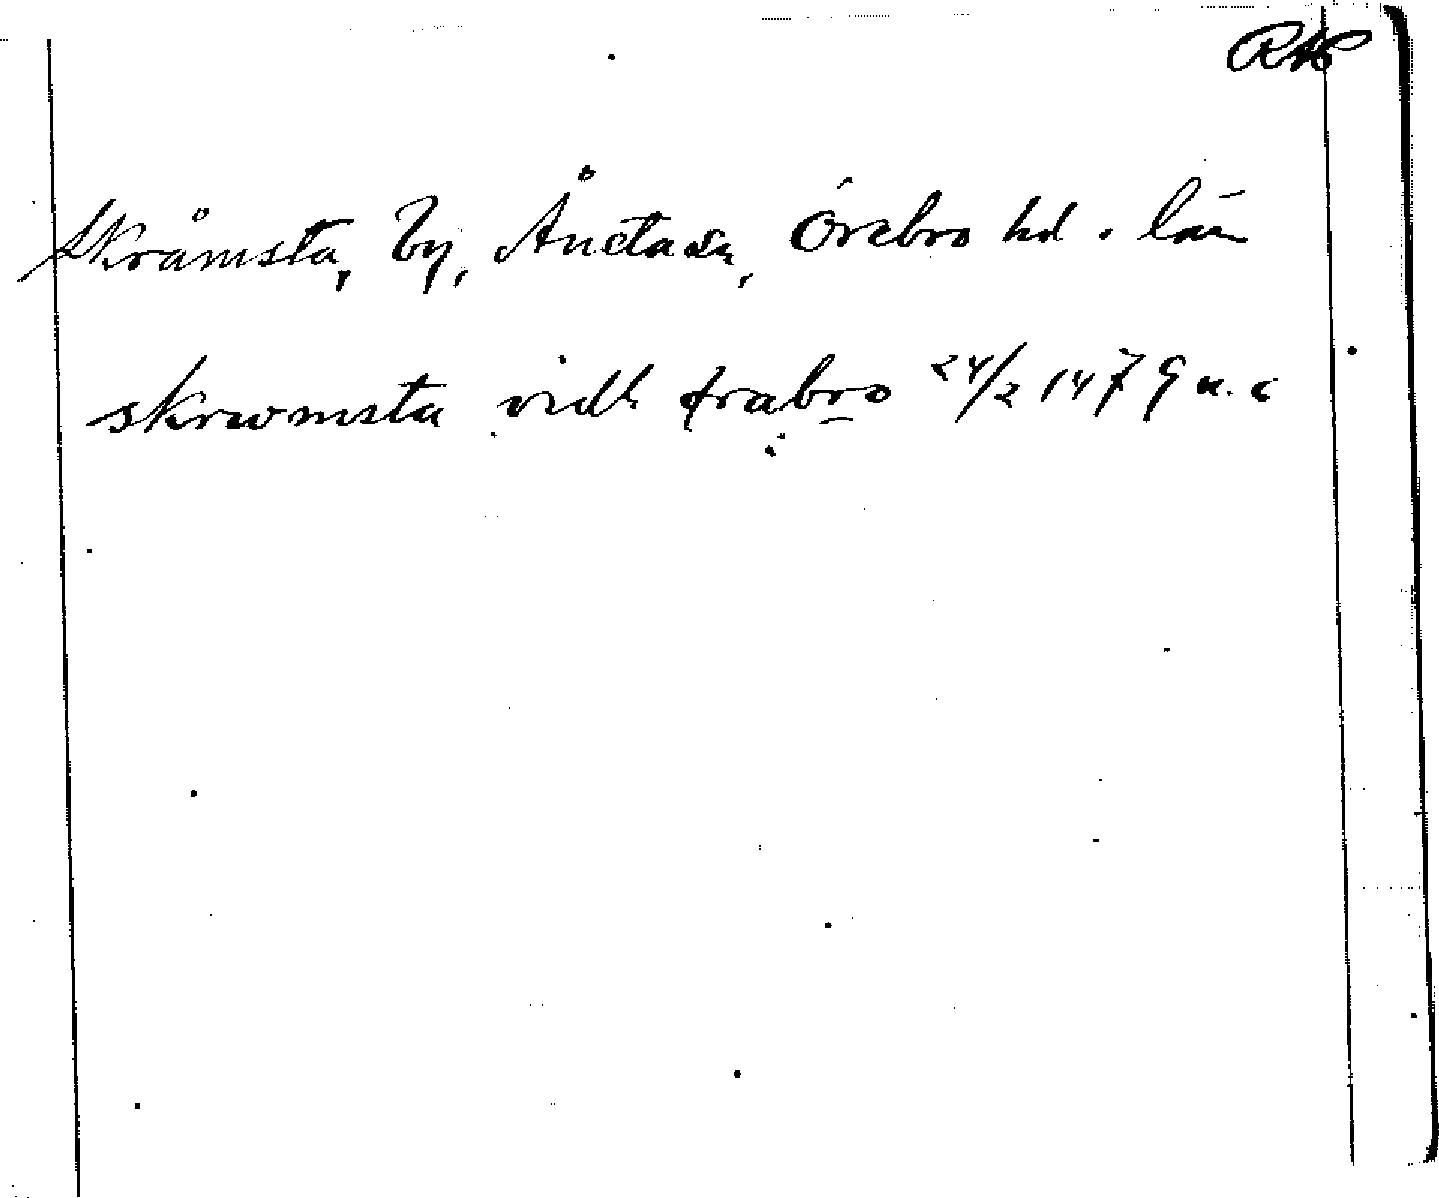 Skråmsta, by, Ånsta sn, Örebro hd. län
skrwmsta vidh ørabro 24/2 1479 n. c